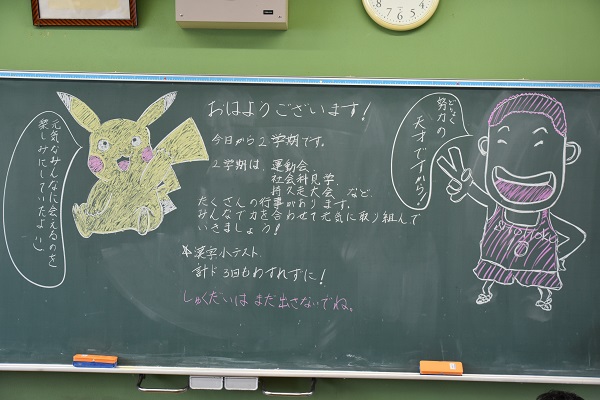 おはようございます!
今日から2学期です。
2学期は、運動会、
社会科見学、
持久走大会、など、
たくさんの行事があります。
みんなで力を合わせて元気に取り組んで
いきましょう!
漢字小テスト
計ド 3回もわすれずに!
しゅくだいは まだ出さないでね。
元気なみんなに会えるのを
楽しみにしていたよ
どりょく
努力の
天才ですから!
10